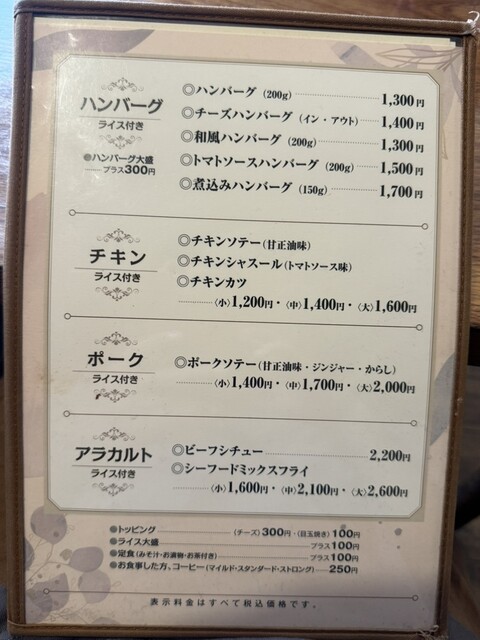 ハンバーグ
ライス付き
●ハンバーグ大盛
……プラス300円
◎ハンバーグ（200g）……1,300円
◎チーズハンバーグ（イン・アウト）……1,400円
◎和風ハンバーグ（200g）……1,300円
◎トマトソースハンバーグ（200g）……1,500円
◎煮込みハンバーグ（150g）……1,700円
チキン
ライス付き
◎チキンソテー（甘正油味）
◎チキンシャスール（トマトソース味）
◎チキンカツ
……〈小〉1,200円・〈中〉1,400円・〈大〉1,600円
ポーク
ライス付き
◎ポークソテー（甘正油味・ジンジャー・からし）
……〈小〉1,400円・〈中〉1,700円・〈大〉2,000円
アラカルト
ライス付き
◎ビーフシチュー……2,200円
◎シーフードミックスフライ
……〈小〉1,600円・〈中〉2,100円・〈大〉2,600円
●トッピング……（チーズ）300円・（目玉焼き）100円
●ライス大盛……プラス100円
●定食（みそ汁・お漬物・お茶付き）……プラス100円
●お食事した方、コーヒー（マイルド・スタンダード・ストロング）……250円
表示料金はすべて税込価格です。